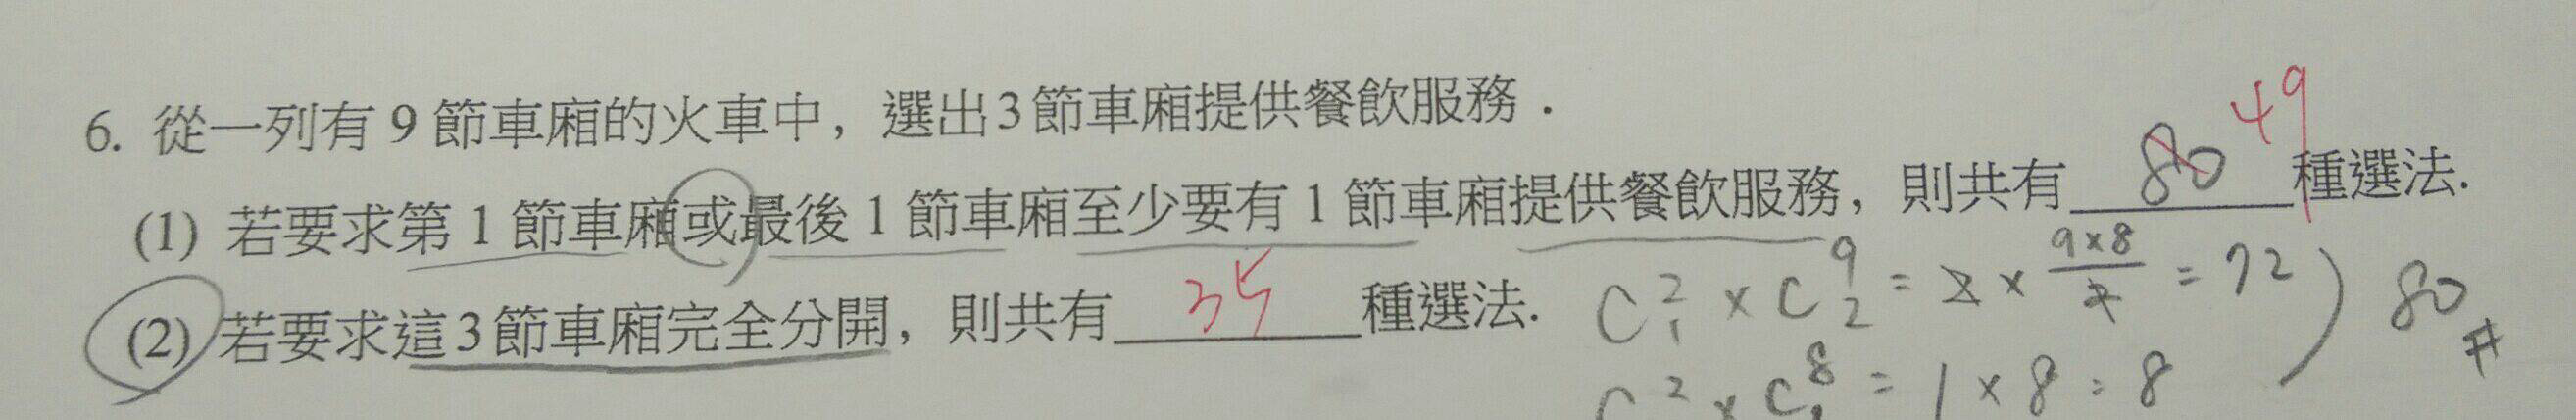 6. 從一列有 9 節車廂的火車中，選出3節車廂提供餐飲服務．
(1) 若要求第 1 節車廂或最後 1 節車廂至少要有 1 節車廂提供餐飲服務，則共有 80 49 種選法.
(2) 若要求這3節車廂完全分開，則共有 35 種選法.
C²₁ × C⁹₂ = 2 × 9×8/2 = 72
C² × C⁸₁ = 1 × 8 = 8
80 #